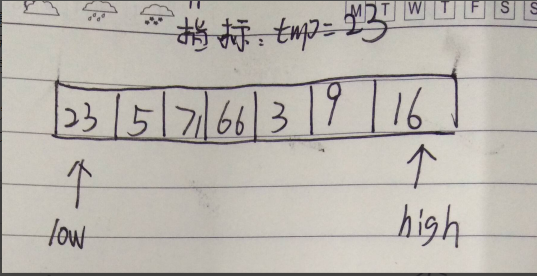 M T W T F S S
指标：tmp=23
23 5 71 66 3 9 16
low high